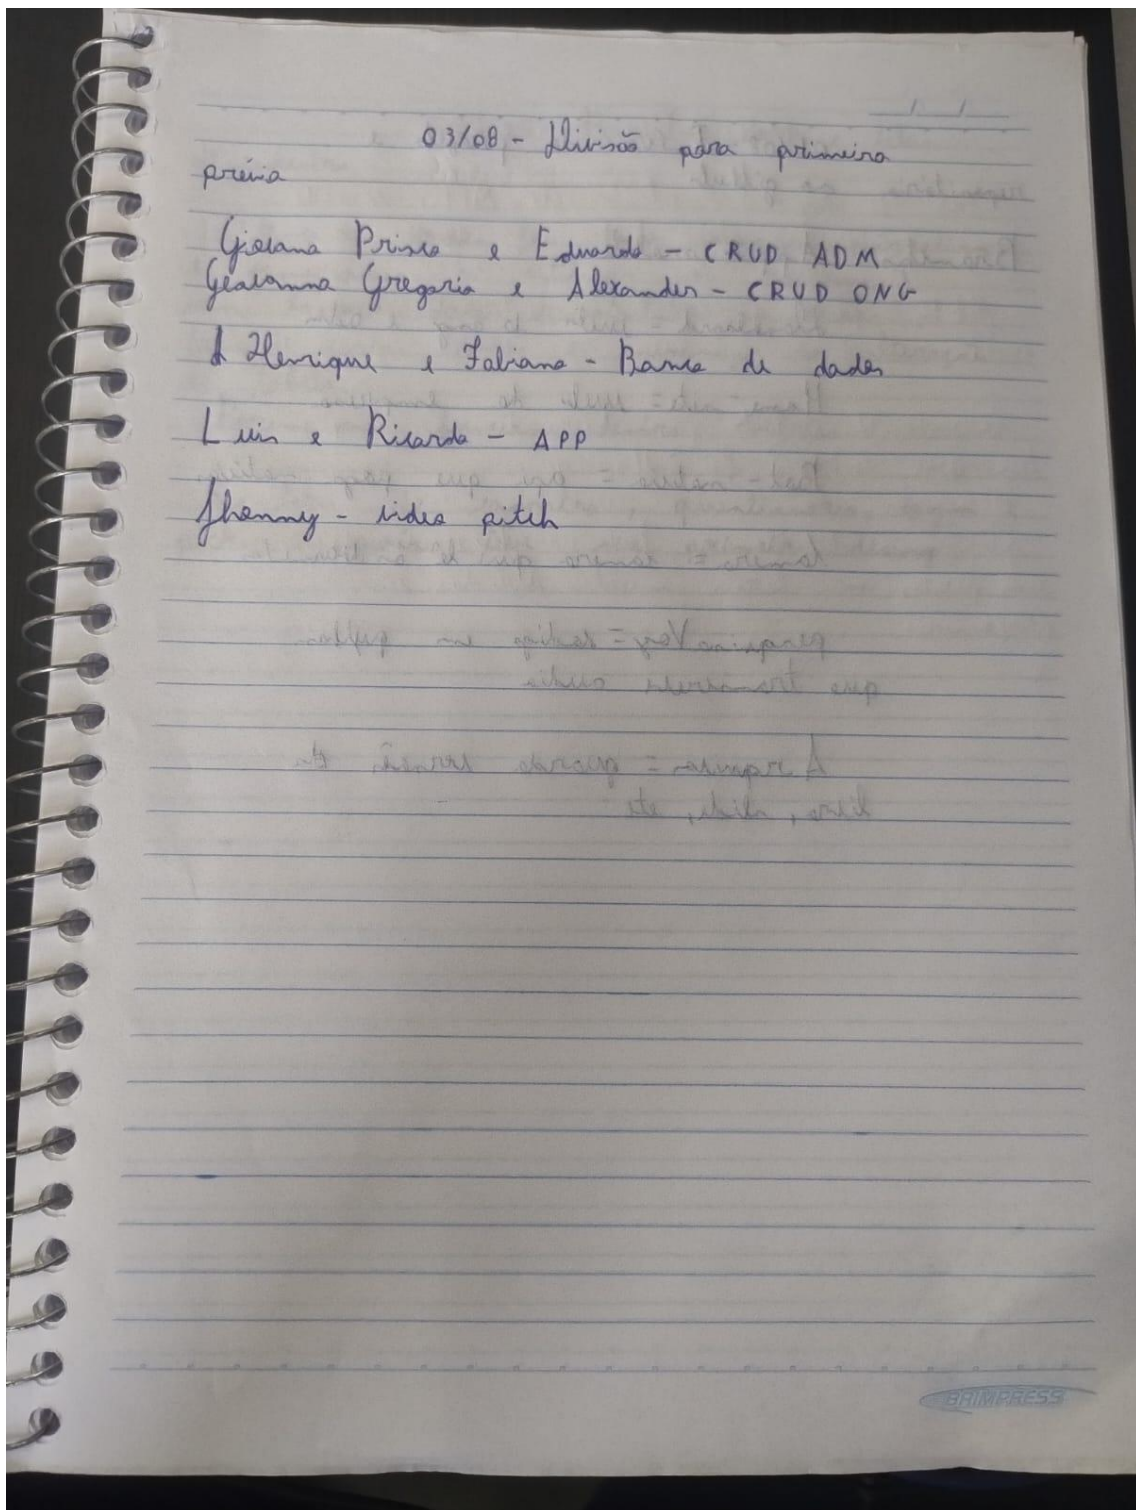 03/08 - Divisão para primeira
prévia
Giovana Prisco e Eduardo - CRUD ADM
Geovanna Gregorio e Alexander - CRUD ONG
Henrique e Fabiano - Banco de dados
Luis e Ricardo - APP
Jhonny - video pitch
BRIMPRESS